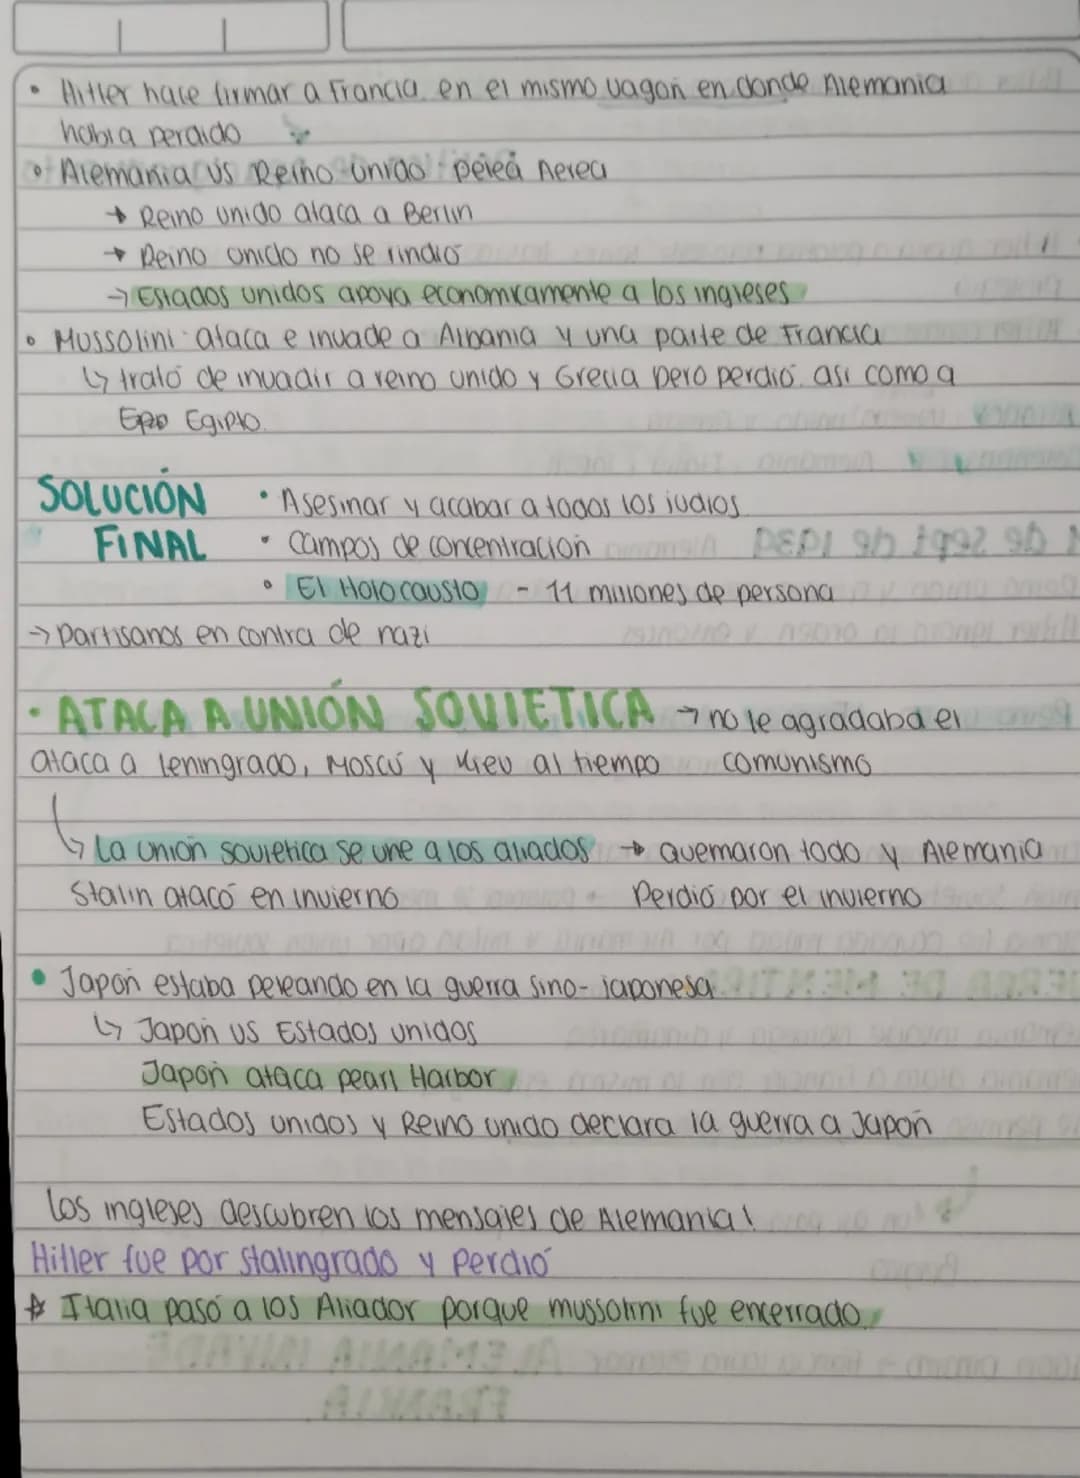 • Hitler hace firmar a Francia en el mismo vagon en donde Alemania
habia perdido
• Alemania vs Reino Unido - pelea Aerea
→ Reino unido ataca a Berlin
→ Reino unido no se rindió
→ Estados unidos apoya economicamente a los ingleses
• Mussolini ataca e invade a Albania y una parte de Francia
↳ trató de invadir a reino unido y Grecia pero perdió. asi como a
Egipto.
SOLUCIÓN • Asesinar y acabar a todos los judios
FINAL • Campos de concentración
• El Holocausto - 11 millones de persona
→ Partisanos en contra de nazi
• ATACA A UNIÓN SOVIETICA → no le agradaba el
ataca a Leningrado, Moscú y Kiev al tiempo comunismo
↳ La unión sovietica se une a los aliados → quemaron todo y Alemania
Stalin atacó en invierno Perdió por el invierno
• Japón estaba peleando en la guerra sino-japonesa
↳ Japon vs Estados unidos
Japón ataca pearl Harbor
Estados unidos y Reino unido declara la guerra a Japón
Los ingleses descubren los mensajes de Alemania!
Hitler fue por Stalingrado y Perdió
☆ Italia pasó a los Aliador porque mussolini fue encerrado